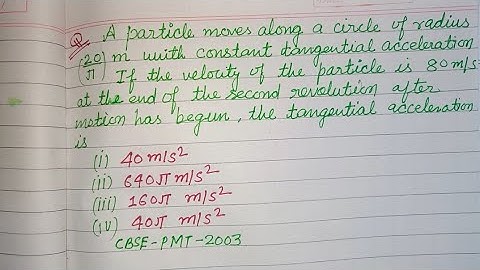 Q. A particle moves along a circle of radius
(20/π) m with constant tangential acceleration
If the velocity of the particle is 80 m/s
at the end of the second revolution after
motion has begun, the tangential acceleration
is
(i) 40 m/s²
(ii) 640π m/s²
(iii) 160π m/s²
(iv) 40π m/s²
CBSE-PMT-2003